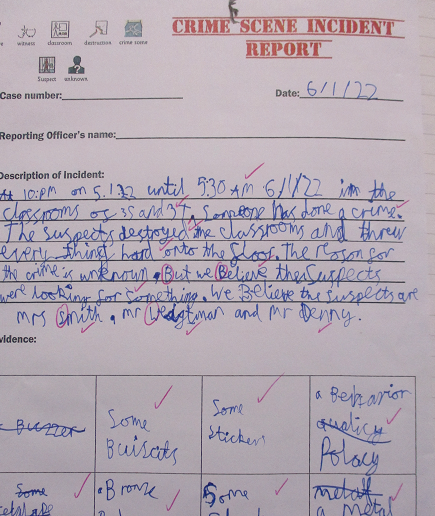 witness classroom destruction crime scene
suspect unknown
CRIME SCENE INCIDENT
REPORT
Case number:
Date: 6/1/22
Reporting Officer's name:
Description of Incident:
At 10:pm on 5.1.22 until 5:30 AM 6/1/22 in the
classrooms of 3S and 3T, Someone has done a crime.
The suspects destoyed the classrooms and threw
every thing hard onto the floor. The reason for
the crime is unknown. But we Believe the suspects
were looking for something. We Believe the suspects are
mrs Smith, mr and Mr Denny.
vidence:
Buzzer
Some
Buiscuts
Some
stickers
a Behavior
quality
Polacy
Some
Bronze
Some
metall
a metal